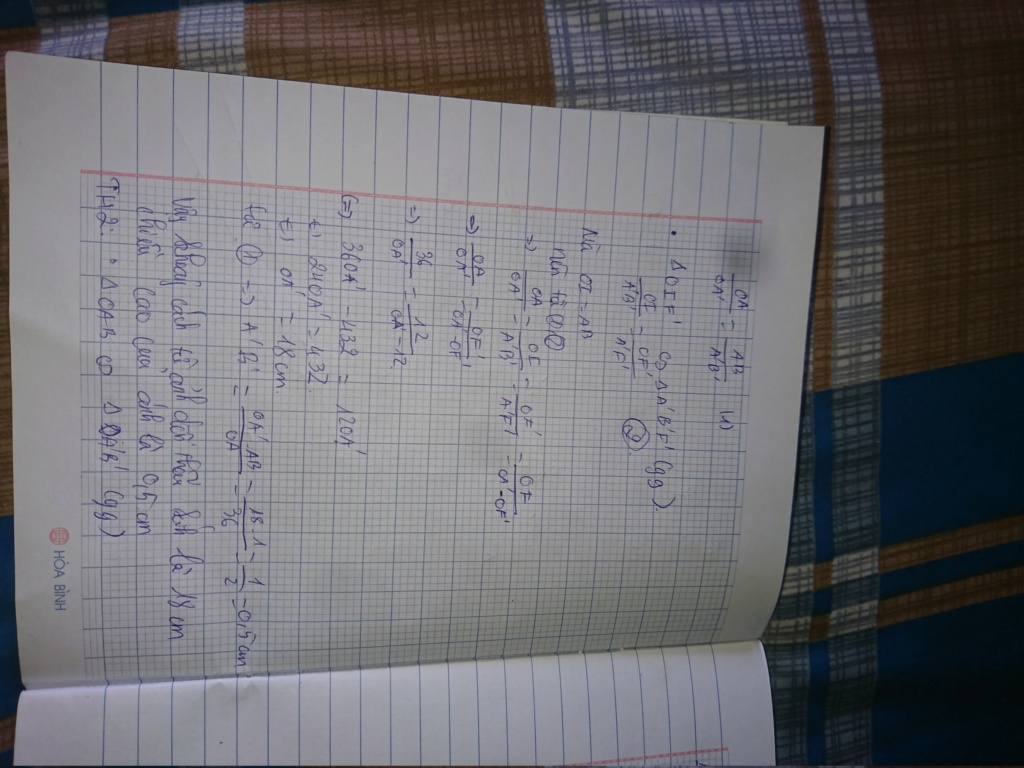 OA/OA' = AB/A'B' (1)
• ΔOIF' ∽ ΔA'B'F' (gg).
OI/A'B' = OF'/A'F' (2)
Mà OI = AB
nên từ (1)(2)
=> OA/OA' = OI/A'B' = OF'/A'F' = OF'/OA'-OF'
=> OA/OA' = OF'/OA'-OF'
=> 36/OA' = 12/OA'-12
(=) 36OA' - 432 = 12OA'
(=) 24OA' = 432
(=) OA' = 18 cm.
từ (1) => A'B' = OA'.AB/OA = 18.1/36 = 1/2 = 0,5 cm
Vậy khoảng cách từ ảnh đến thấu kính là 18 cm
chiều cao của ảnh là 0,5 cm
TH2: • ΔOAB ∽ ΔOA'B' (gg)
HÒA BÌNH